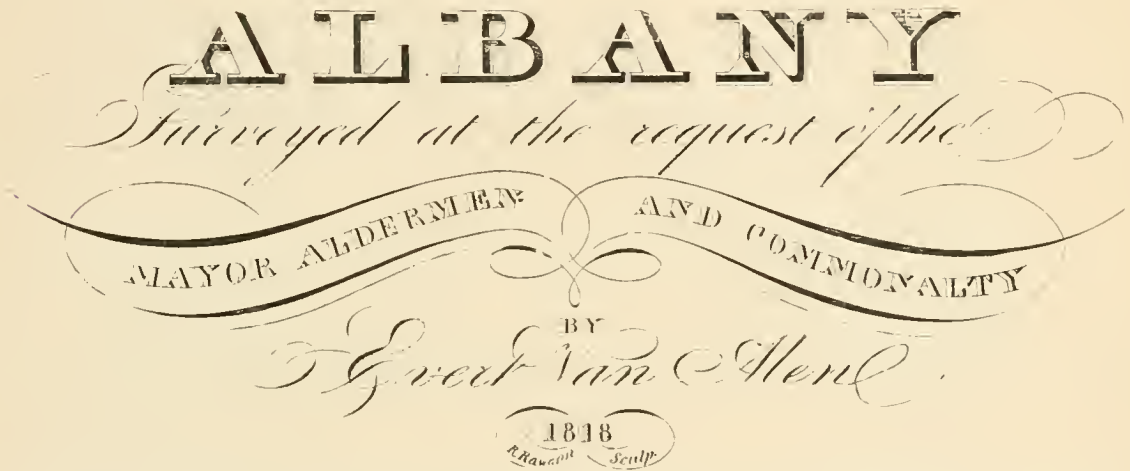 ALBANY
Surveyed at the request of the
MAYOR ALDERMEN AND COMMONALTY
BY
Evert Van Alen
1818
Sculp.